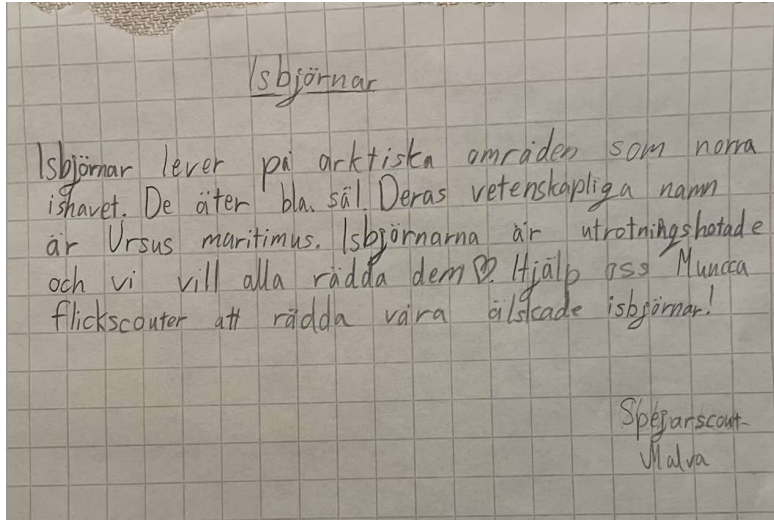 Isbjörnar
Isbjörnar lever på arktiska områden som norra
ishavet. De äter bla. säl. Deras vetenskapliga namn
är Ursus maritimus. Isbjörnarna är utrotningshotade
och vi vill alla rädda dem♡. Hjälp oss Muncca
flickscouter att rädda våra älskade isbjörnar!
Spejarscout
Malva